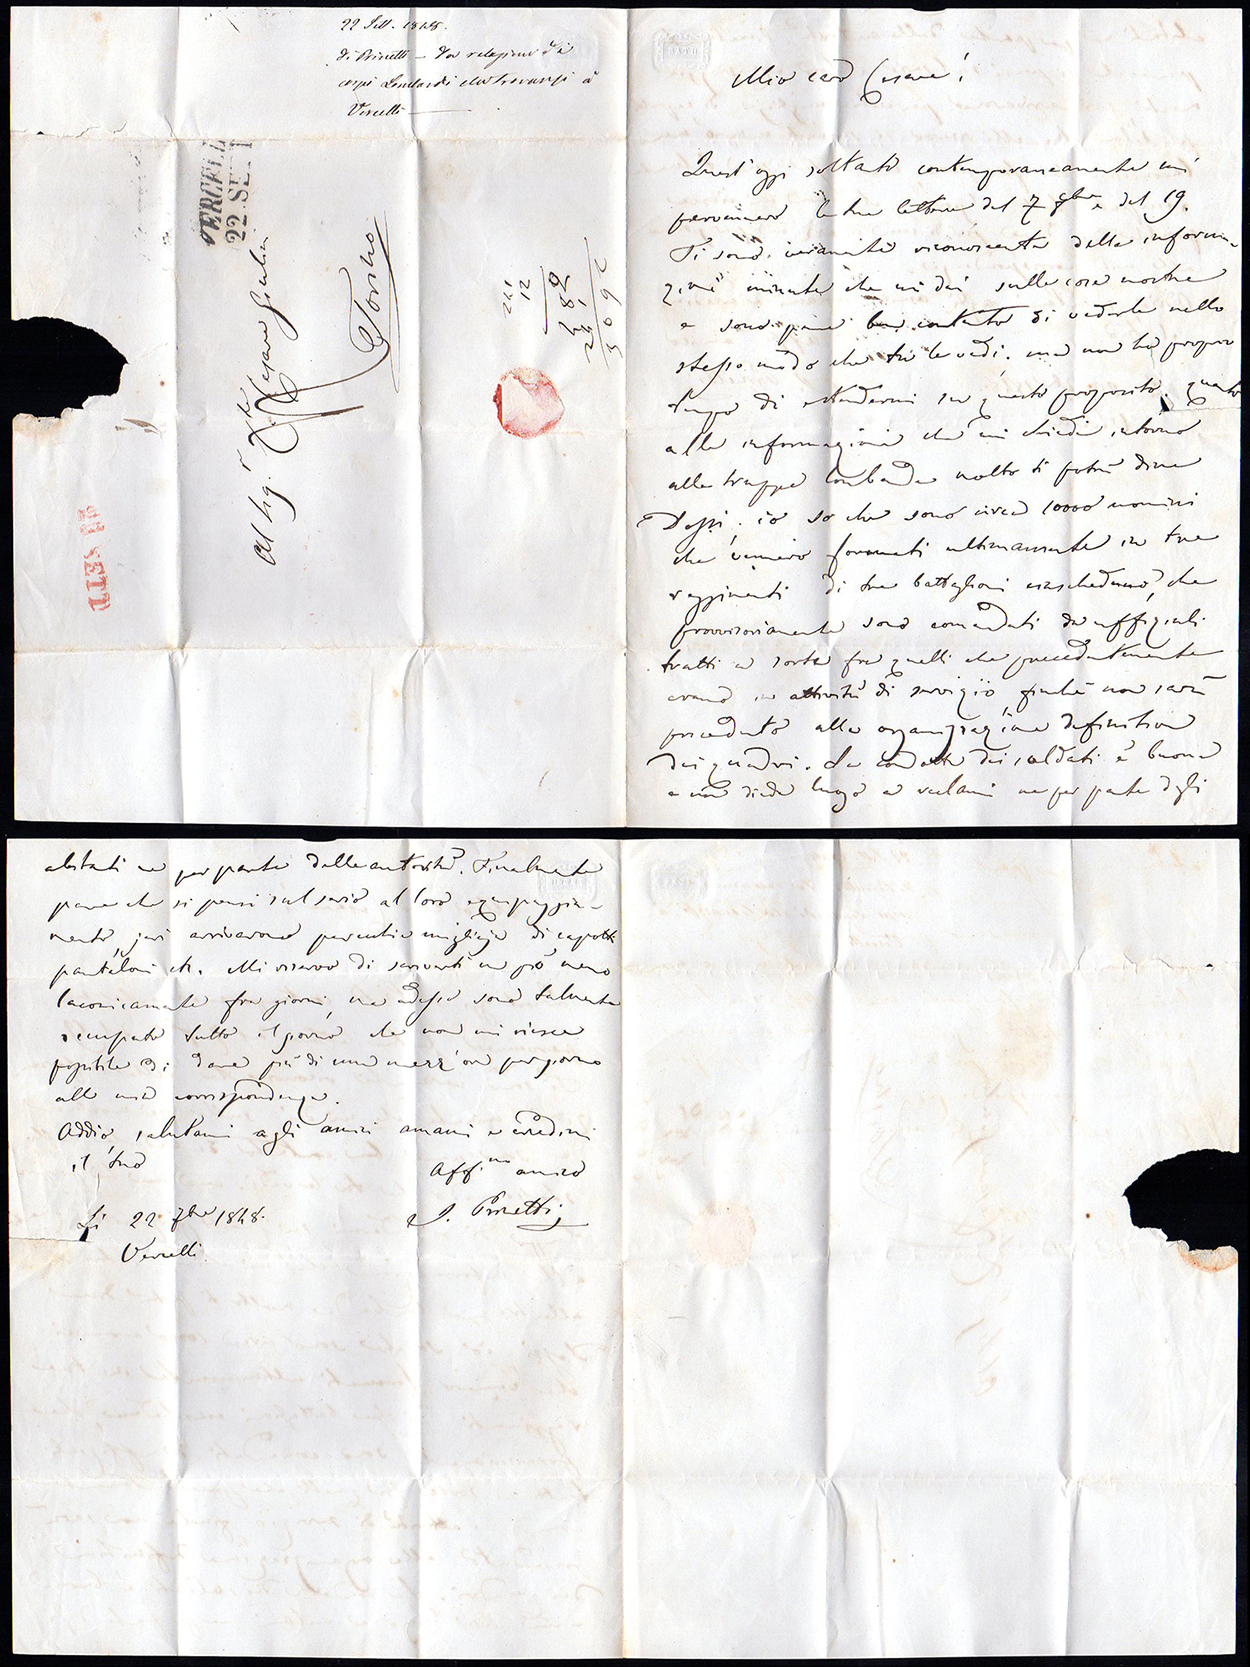 22 Sett. 1848.
di Prinetti — Dà relazione dei
corpi Lombardi che trovansi a
Vercelli —
VERCELLI
22 SET
Al Sig.r
Cesare Giulini
Torino
SETT
Mio caro Cesare!
Quest'oggi soltanto contemporaneamente mi
pervennero le tue lettere del 7 7bre e del 19.
Ti sono veramente riconoscente delle informa-
zioni minute che mi dai sulle cose nostre
e sono pure ben contento di vederle nello
stesso modo che tu le vedi. ma non ho proprio
tempo di estendermi su questo proposito. quanto
alle informazioni che mi chiedi intorno
alle truppe lombarde molto ti potrà dire
Dossi. io so che sono circa 10000 uomini
che vennero formati ultimamente in tre
reggimenti di tre battaglioni ciascheduno, che
provvisoriamente sono comandati da uffiziali
tratti a sorte fra quelli che precedentemente
erano in attività di servizio, finché non sarà
proceduto alla organizzazione definitiva
dei quadri. La condotta dei soldati è buona
e non diede luogo a reclami ne per parte degli
abitanti ne per parte delle autorità. Finalmente
pare che si pensi sul serio al loro equipaggia-
mento, jeri arrivarono parecchie migliaja di capotti
pantaloni etc. Mi riservo di scriverti un po' meno
laconicamente fra giorni, ma adesso sono talmente
occupato tutto il giorno che non mi riesce
possibile di dare più di una mezz'ora per giorno
alla mia corrispondenza.
Addio, salutami agli amici amami e credimi
il tuo
Aff.mo amico
Prinetti
Li 22 7bre 1848.
Vercelli.